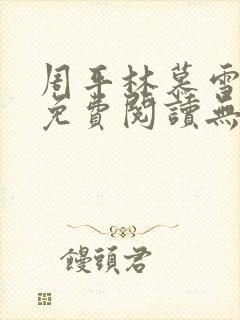 周平林慕雪
免費閱讀無
饅頭君